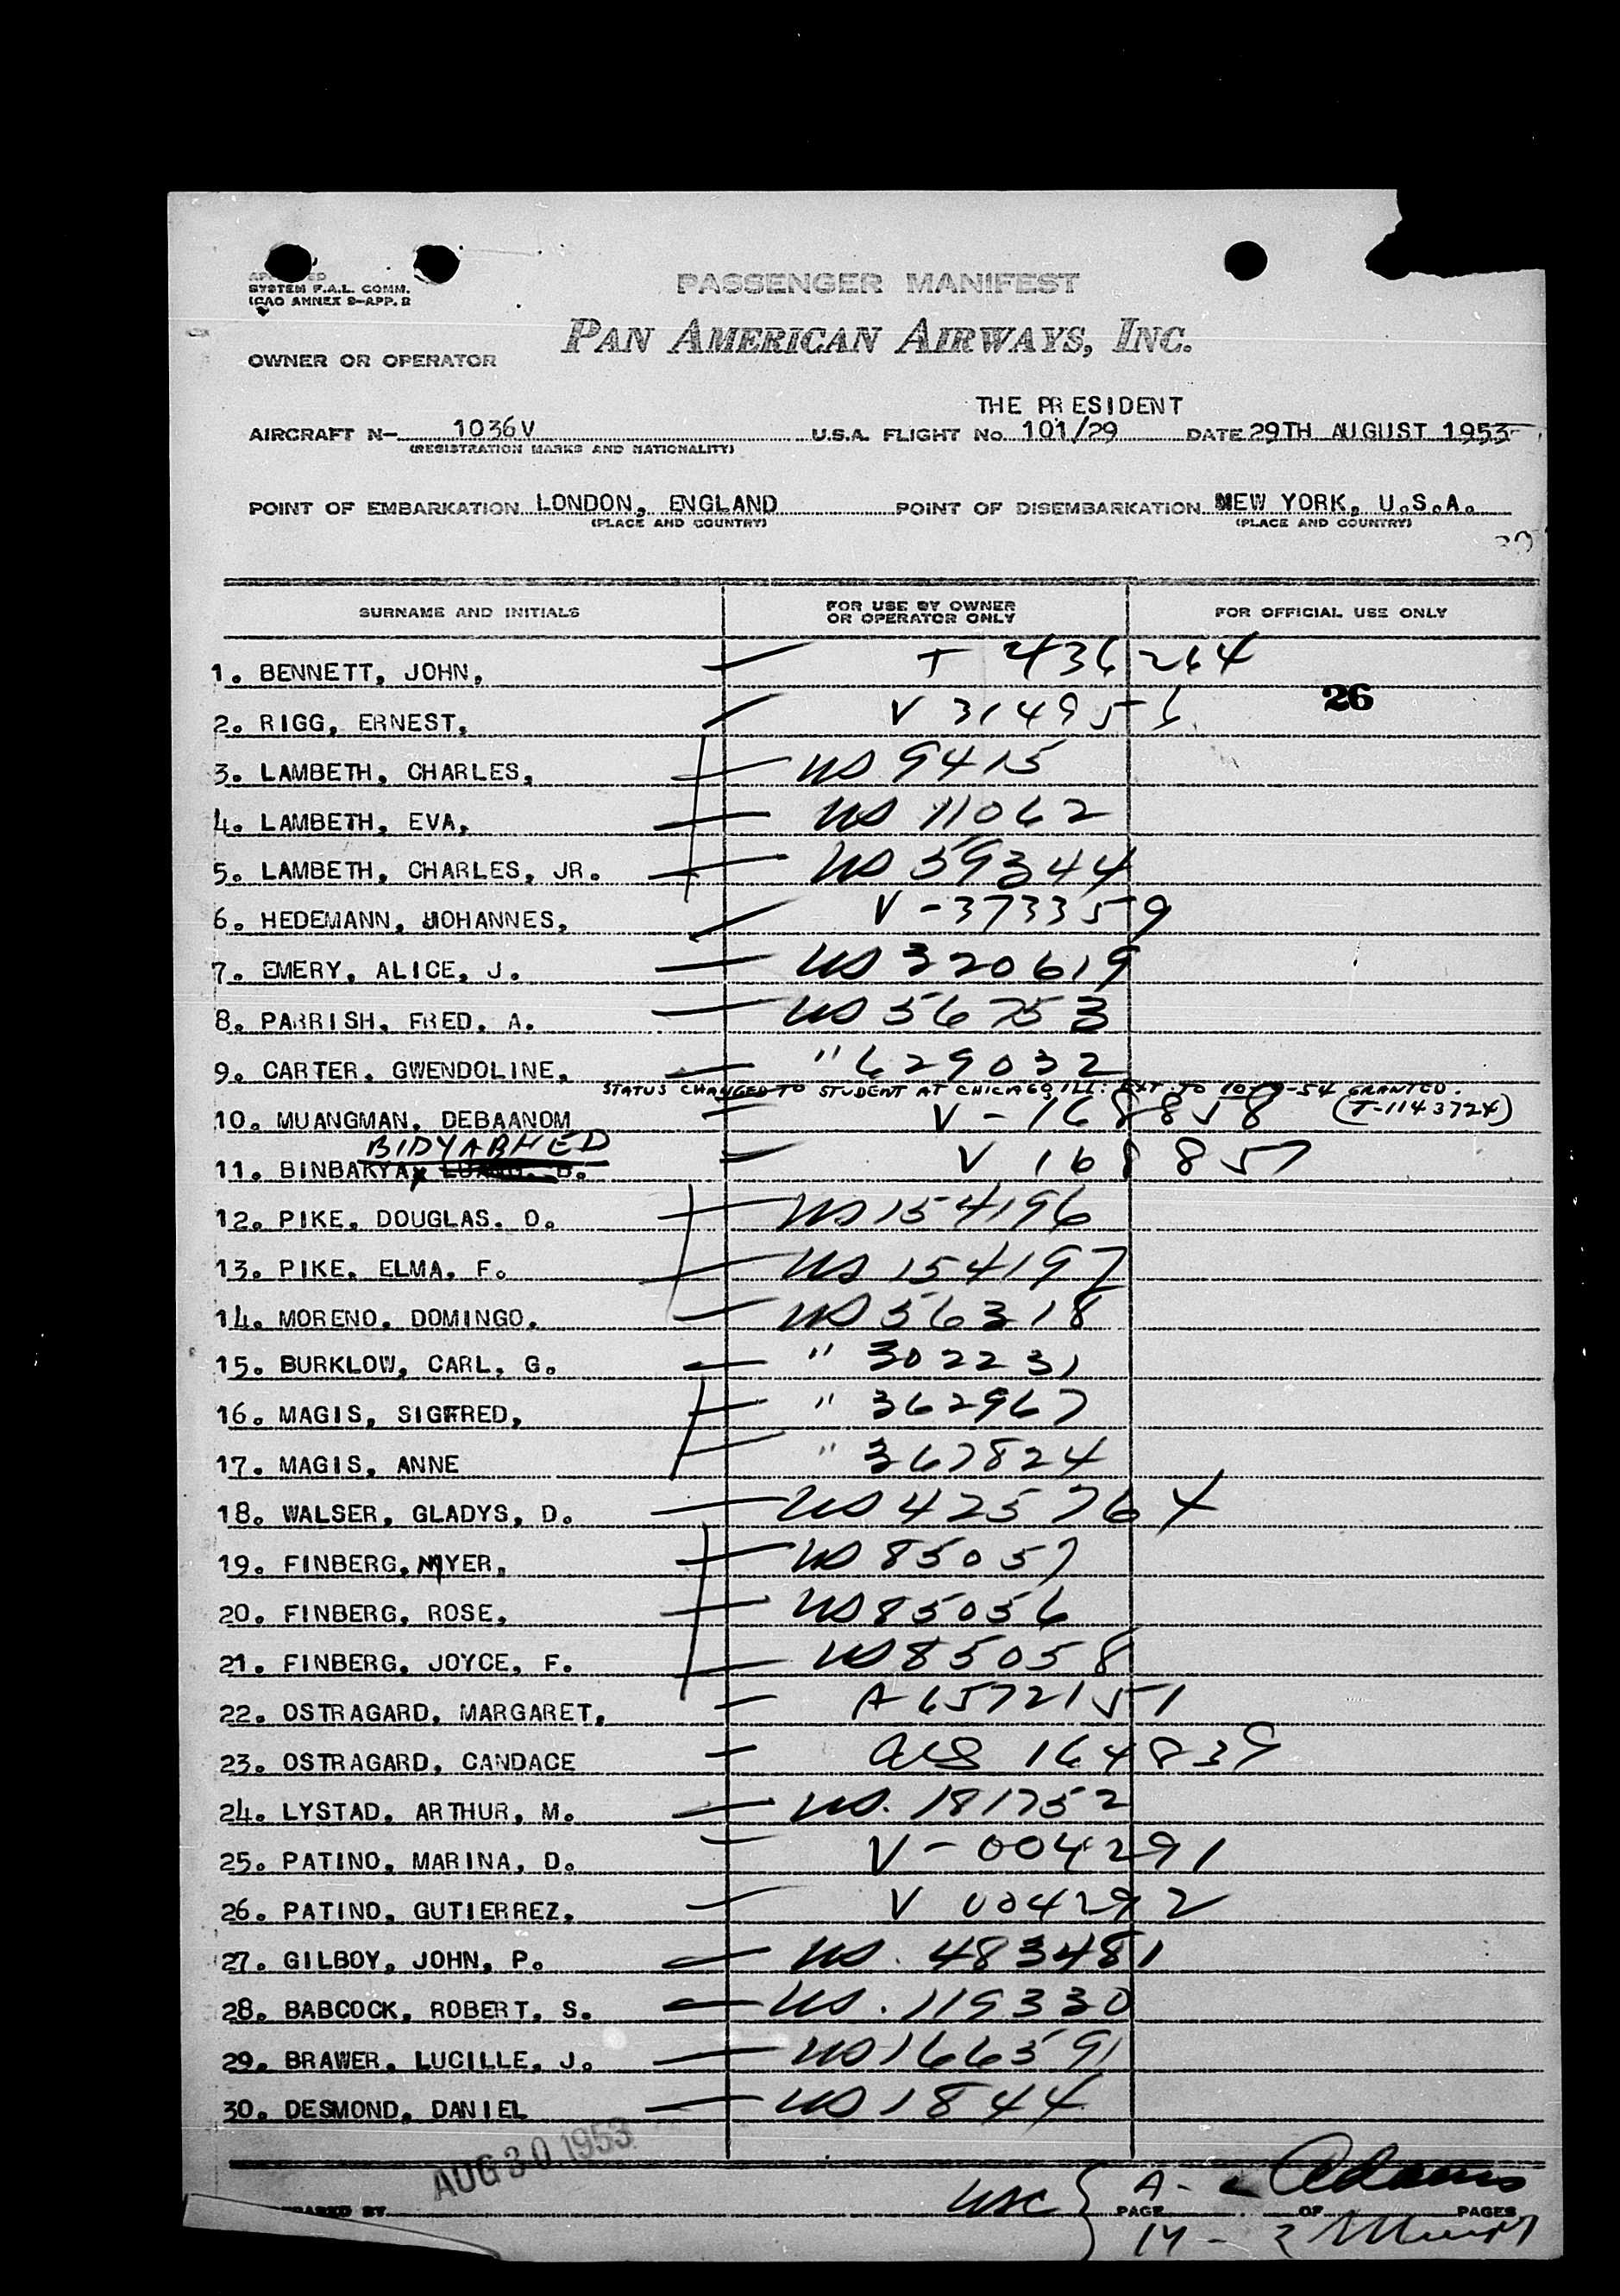 SYSTEM F.A.L. COMM.
ICAO ANNEX 9-APP. 2
PASSENGER MANIFEST
PAN AMERICAN AIRWAYS, INC.
OWNER OR OPERATOR
THE PRESIDENT
AIRCRAFT N- 1036V U.S.A. FLIGHT No 101/29 DATE 29TH AUGUST 1953
(REGISTRATION MARKS AND NATIONALITY)
POINT OF EMBARKATION LONDON, ENGLAND POINT OF DISEMBARKATION NEW YORK, U.S.A.
(PLACE AND COUNTRY) (PLACE AND COUNTRY)
SURNAME AND INITIALS FOR USE BY OWNER OR OPERATOR ONLY FOR OFFICIAL USE ONLY
1. BENNETT, JOHN, T 436264
26
2. RIGG, ERNEST, V 3149556
3. LAMBETH, CHARLES, US 9415
4. LAMBETH, EVA, US 11062
5. LAMBETH, CHARLES, JR. US 59344
6. HEDEMANN, JOHANNES, V-373359
7. EMERY, ALICE, J. US 320619
8. PARRISH, FRED. A. US 56753
9. CARTER, GWENDOLINE, " 629032
STATUS CHANGED TO STUDENT AT CHICAGO ILL: EXT. TO 10-9-54 GRANTED.
10. MUANGMAN, DEBAANOM V-168858 (T-1143724)
BIDYABHED
11. BINBAKYA, V 168857
12. PIKE, DOUGLAS. O. US 154196
13. PIKE. ELMA. F. US 154197
14. MORENO, DOMINGO, US 56318
15. BURKLOW, CARL, G. " 302231
16. MAGIS, SIGFRED, " 362967
17. MAGIS, ANNE " 367824
18. WALSER, GLADYS, D. US 425764
19. FINBERG, MYER, US 85057
20. FINBERG, ROSE, US 85056
21. FINBERG, JOYCE, F. US 85058
22. OSTRAGARD, MARGARET, A 6572151
23. OSTRAGARD, CANDACE 164839
24. LYSTAD, ARTHUR, M. US. 181752
25. PATINO, MARINA, D. V-004291
26. PATINO, GUTIERREZ, V 004292
27. GILBOY, JOHN, P. US. 483481
28. BABCOCK, ROBERT, S. US. 119330
29. BRAWER, LUCILLE, J. US 166591
30. DESMOND, DANIEL US 1844
AUG 30 1953
A- Adams
BY USC PAGE OF PAGES